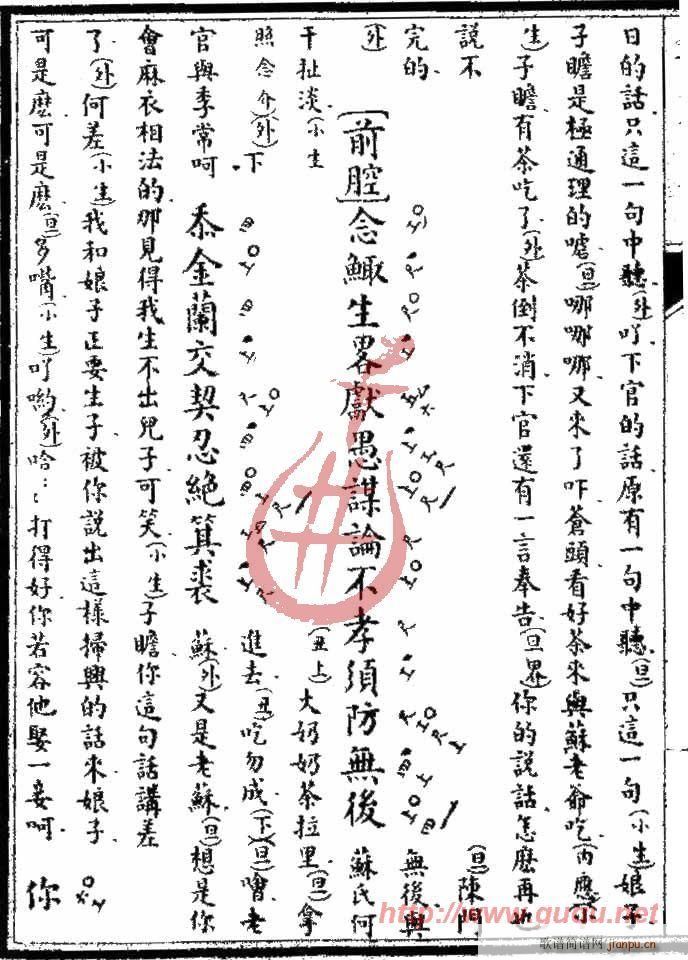 日的話只這一句中聽(外)吖下官的話原有一句中聽(旦)只這一句(小生)娘子
子瞻是極通理的嘘(旦)哪哪哪又來了吓蒼頭看好茶來與蘇老爺吃(內應介
生)子瞻有茶吃了(外)茶倒不消下官還有一言奉告(旦界)你的說話怎麽再也
說不(旦)陳門
完的無後與
(外)[前腔]念鯫生畧獻愚謀論不孝須防無後蘇氏何
干扯淡(小生(丑上)大奶奶茶拉里(旦)拿
照念介)(外)下進去(丑)吃勿成(下)(旦)嚕老
官與季常呵忝金蘭交契忍絕箕裘蘇(外)又是老蘇(旦)想是你
會麻衣相法的那見得我生不出兒子可笑(小生)子瞻你這句話講差
了(外)何差(小生)我和娘子正要生子被你說出這樣掃興的話來娘子
可是麽可是麽(旦)多嘴(小生)吖喲(外)哈:打得好你若容他娶一妾呵你
http://www.guqu.net
歌谱简谱网
jianpu.cn